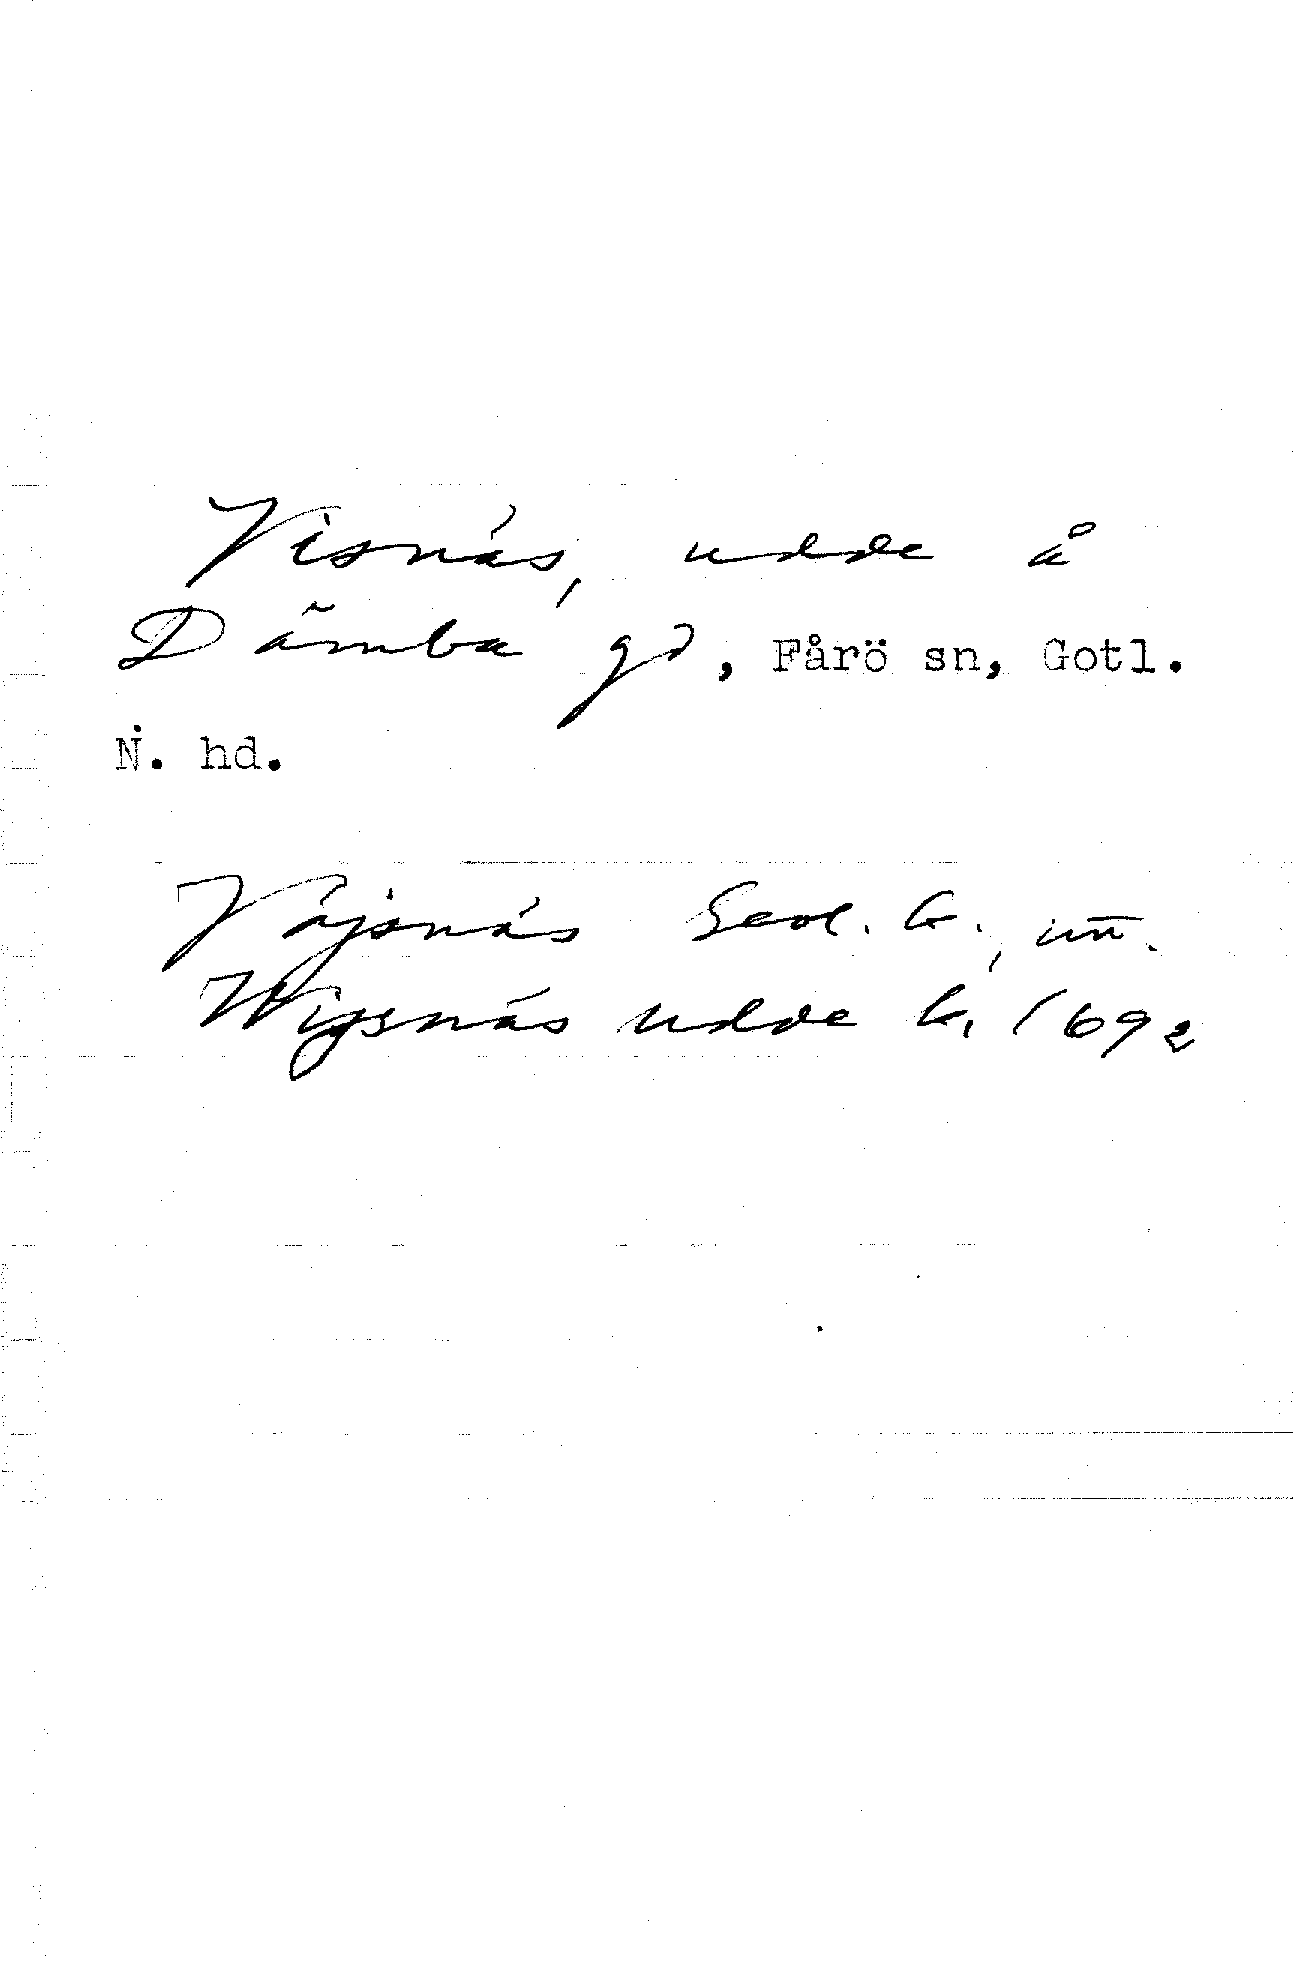 Visnäs, udde å
Dämba gd, Fårö sn, Gotl.
N. hd.
Väjsnäs Geol. k., un.
Wijsnäs udde k. 1692